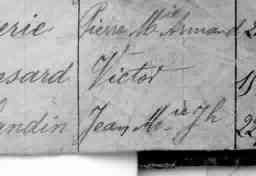 erie Pierre Mie Armand 2
sard Victor 19
andin Jean Mie Jh 22